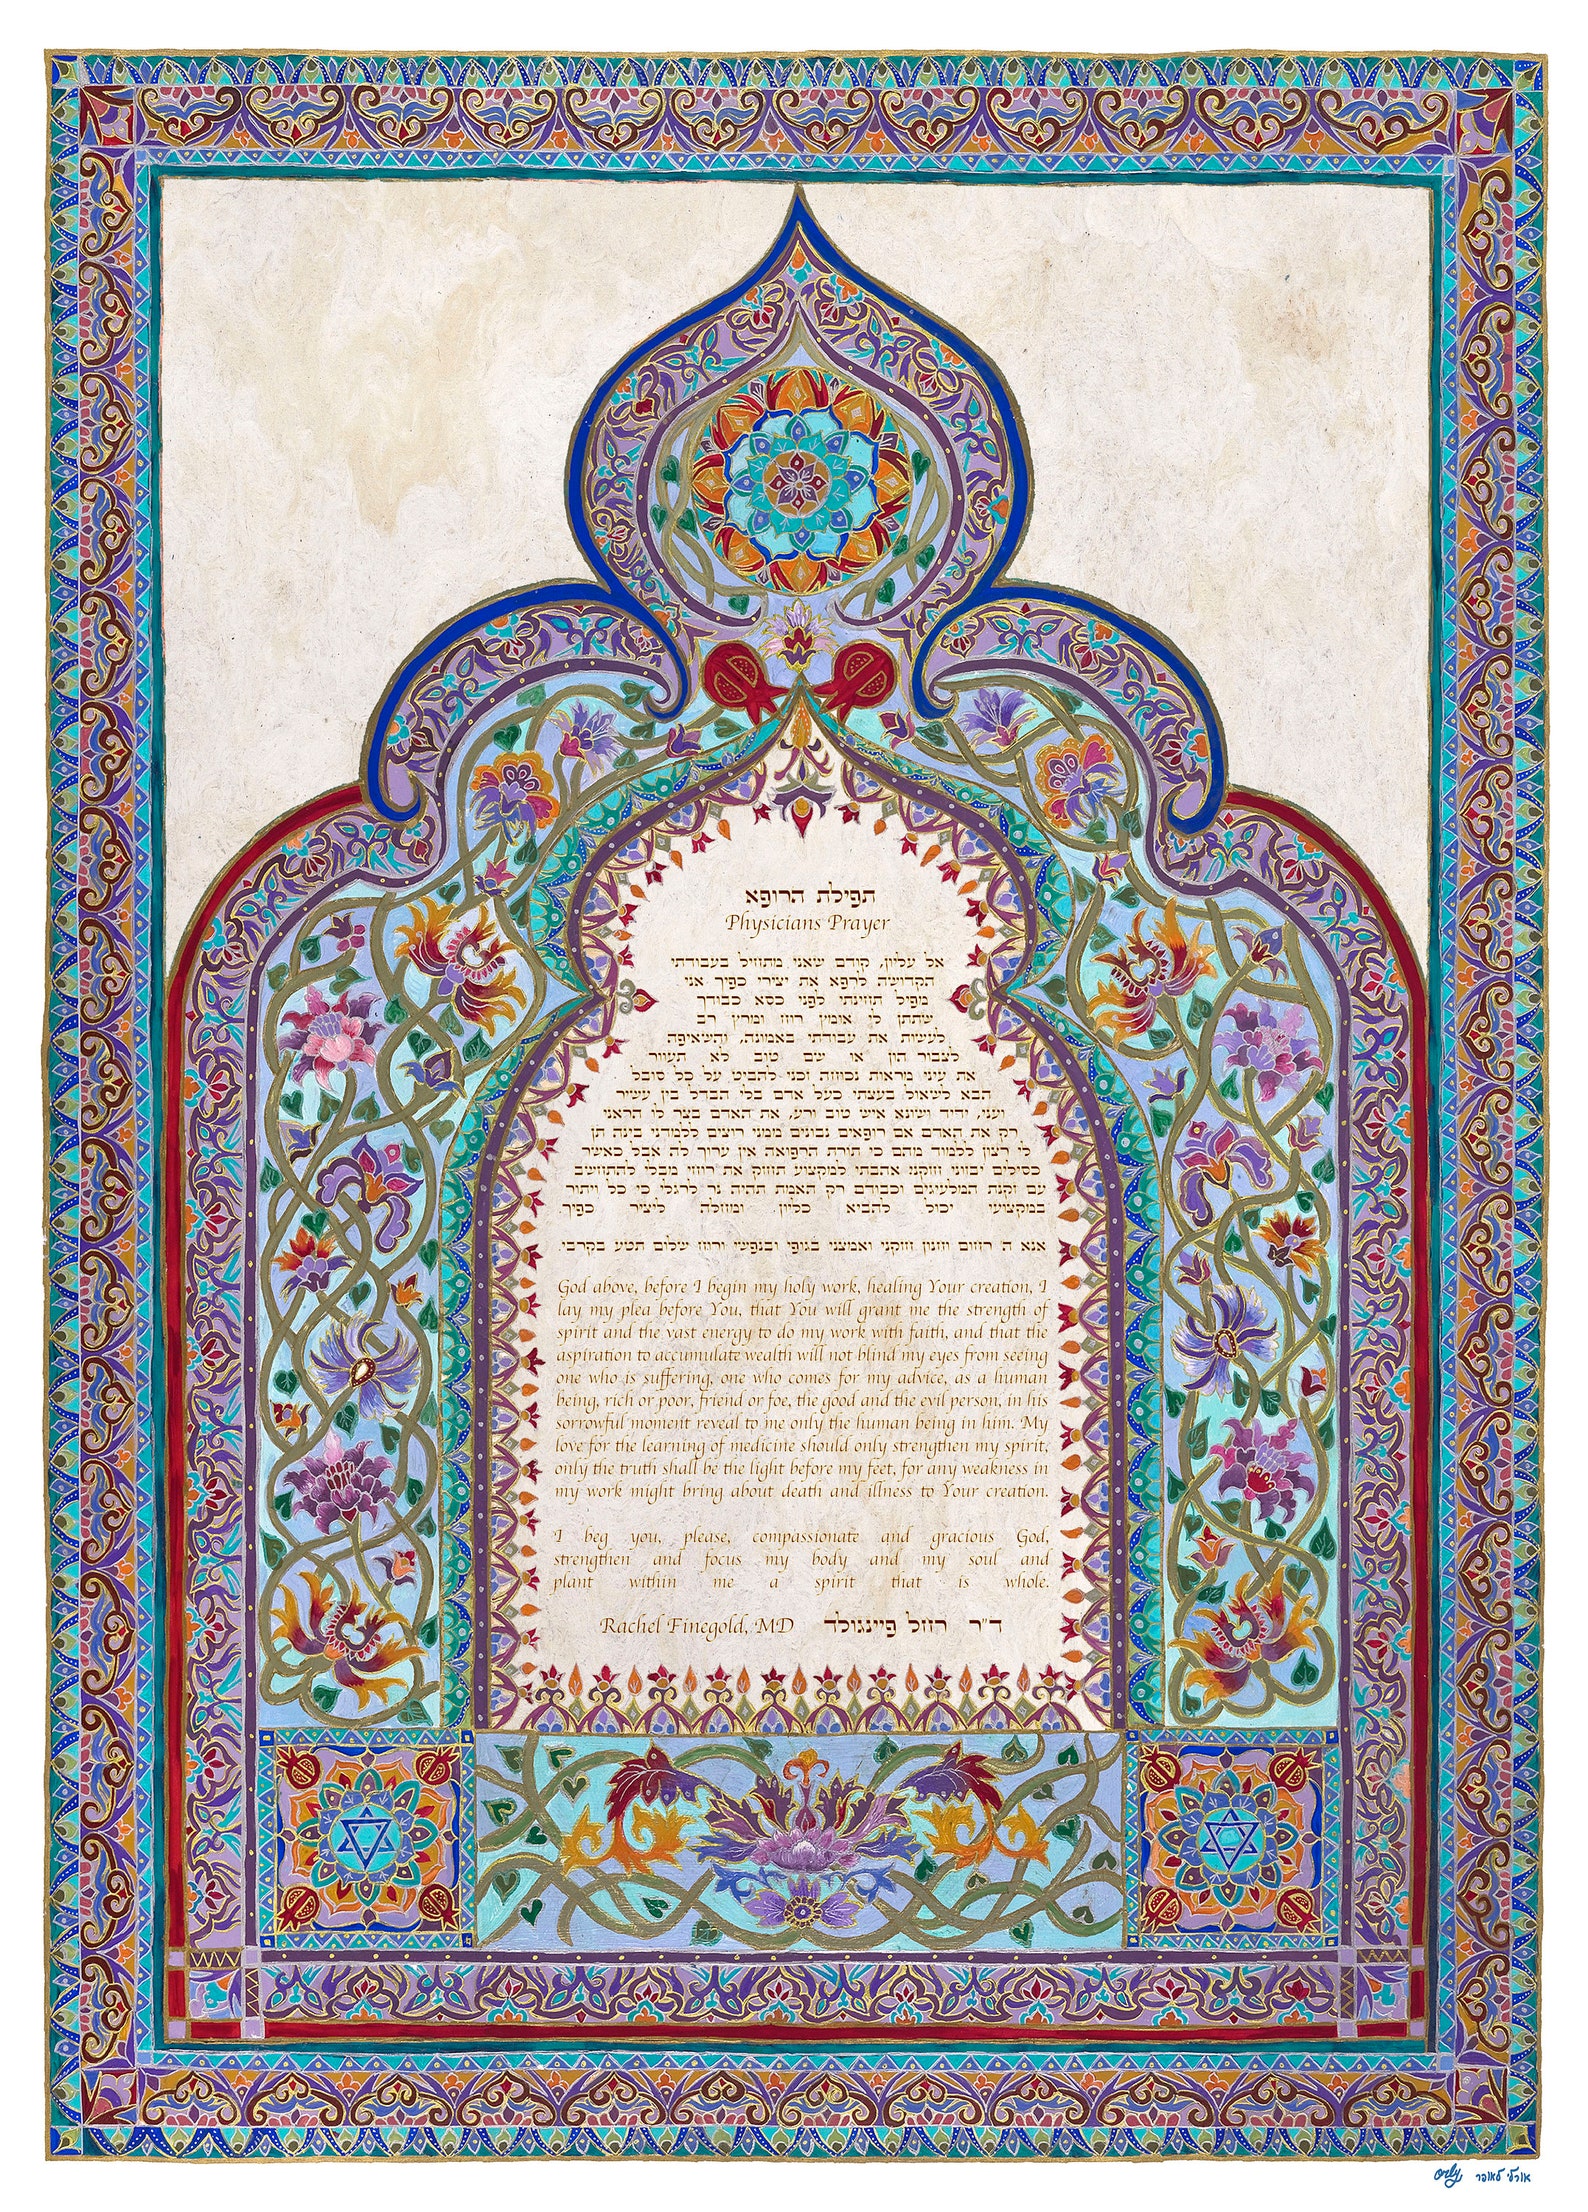 תפילת הרופא
Physicians Prayer
אל עליון, קודם שאני מתחיל בעבודתי
הקדושה לרפא את יצירי כפיך אני
מפיל תחינתי לפני כסא כבודך
שתתן לי אומץ רוח ומרץ רב
לעשות את עבודתי באמונה, והשאיפה
לצבור הון או שם טוב לא תעוור
את עיני מראות נכוחה זכני להביט על כל סובל
הבא לשאול בעצתי כעל אדם בלי הבדל בין עשיר
ועני, ידיד ושונא איש טוב ורע, את האדם בצר לו הראני
רק את האדם אם רופאים נבונים ממני רוצים ללמדני בינה תן
לי רצון ללמוד מהם כי תורת הרפואה אין ערוך לה אבל כאשר
כסילים יבזוני וחזקני אהבתי למקצוע תחזק את רוחי מבלי להתחשב
עם זקנת המלעיגים וכבודם רק האמת תהיה נר לרגלי כי כל ויתור
במקצועי יכול להביא כליון ומחלה ליציר כפיך
אנא ה רחום וחנון חזקני ואמצני בגופי ובנפשי ורוח שלום תטע בקרבי.
God above, before I begin my holy work, healing Your creation, I
lay my plea before You, that You will grant me the strength of
spirit and the vast energy to do my work with faith, and that the
aspiration to accumulate wealth will not blind my eyes from seeing
one who is suffering, one who comes for my advice, as a human
being, rich or poor, friend or foe, the good and the evil person, in his
sorrowful moment reveal to me only the human being in him. My
love for the learning of medicine should only strengthen my spirit,
only the truth shall be the light before my feet, for any weakness in
my work might bring about death and illness to Your creation.
I beg you, please, compassionate and gracious God,
strengthen and focus my body and my soul and
plant within me a spirit that is whole.
Rachel Finegold, MD ד"ר רחל פיינגולד
orly אורלי לאופר